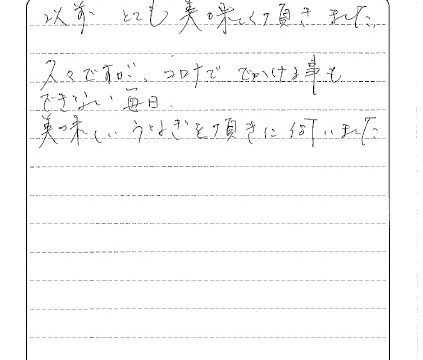 以前 とても 美味しく頂きました
久々ですが、コロナで でかける事も
できない 毎日、
美味しい うなぎを頂きに 伺いました